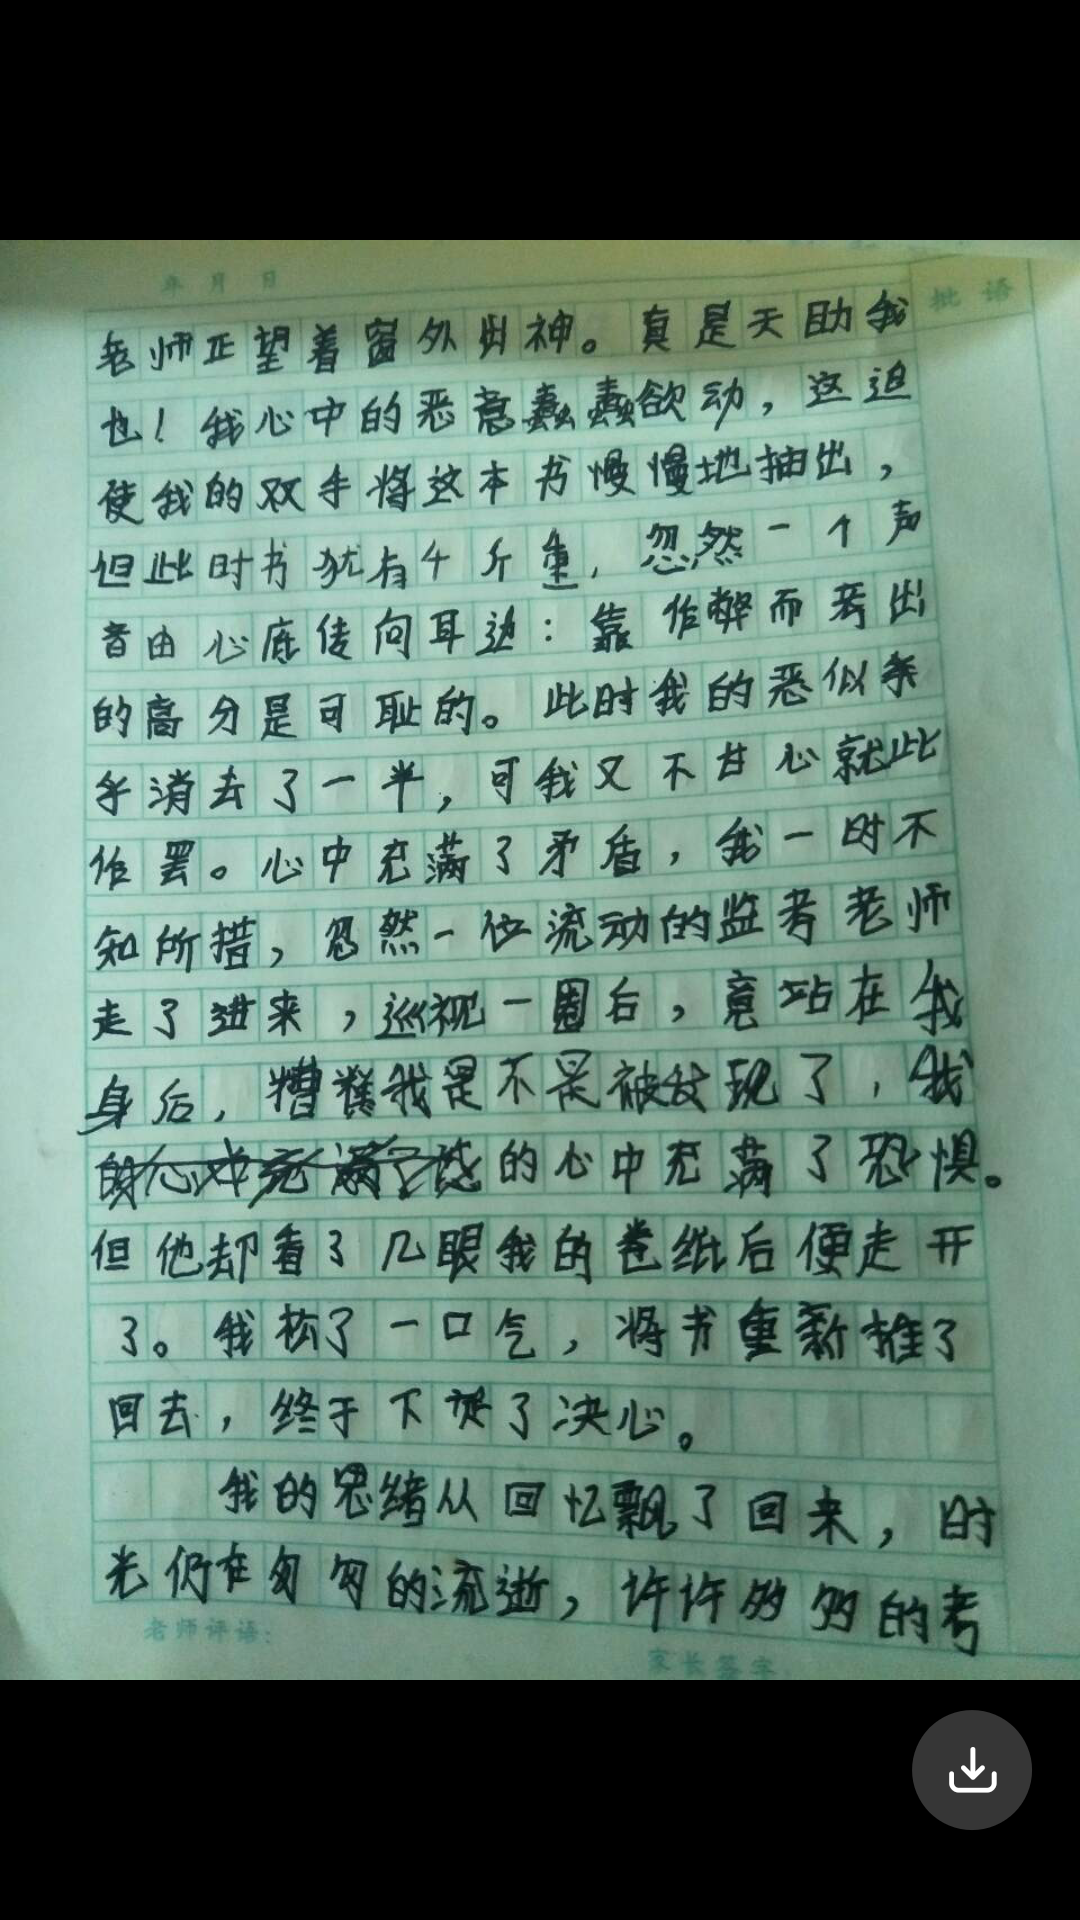 年 月 日
批 语
老师正望着窗外出神。真是天助我
也！我心中的恶意蠢蠢欲动，这迫
使我的双手将这本书慢慢地抽出，
但此时书犹有千斤重，忽然一个声
音由心底传向耳边：靠作弊而考出
的高分是可耻的。此时我的恶似乎
乎消去了一半，可我又不甘心就此
作罢。心中充满了矛盾，我一时不
知所措，忽然一位流动的监考老师
走了进来，巡视一圈后，竟站在我
身后，糟糕我是不是被发现了，我
的心中充满了恐惧。
但他却看了几眼我的卷纸后便走开
了。我松了一口气，将书重新推了
回去，终于下定了决心。
我的思绪从回忆飘了回来，时
光仍在匆匆的流逝，许许多多的考
老师评语：
家长签字：